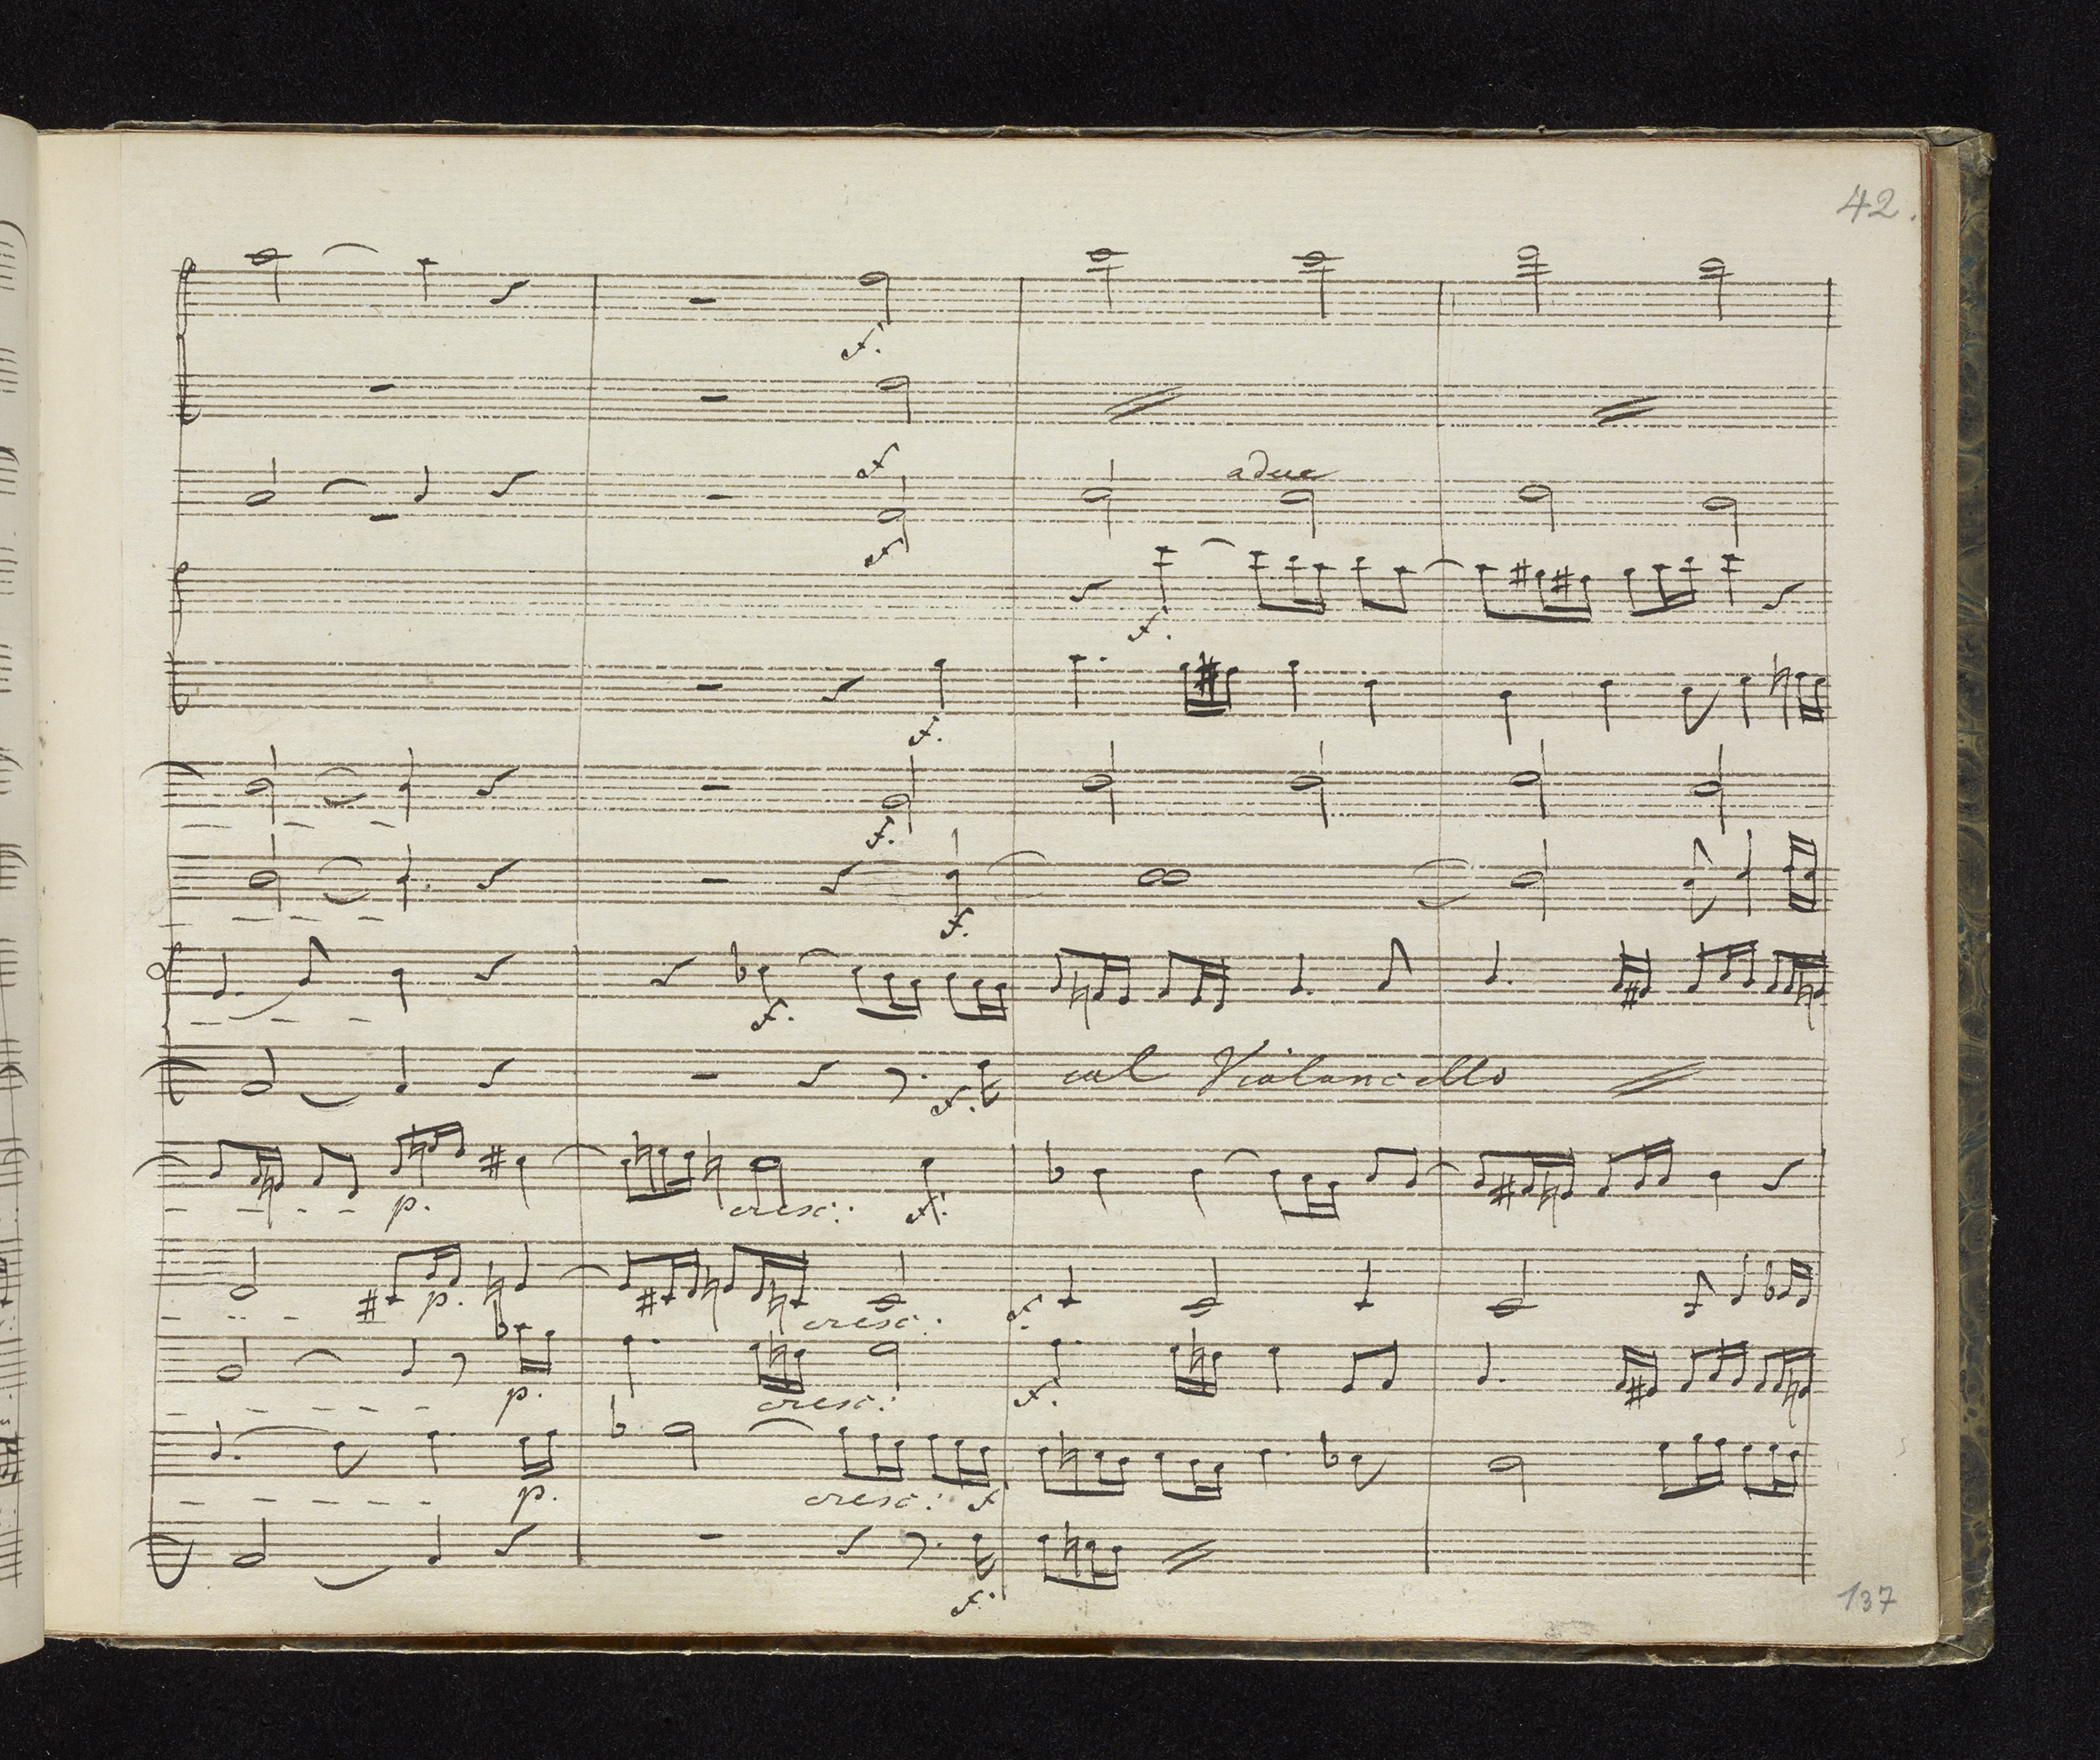 42.
f.
f
a due
f.
f.
f.
f.
f.
f.
f. col Violoncello
p. cresc: f.
p. cresc: f.
p. cresc: f.
p. cresc: f
f.
137